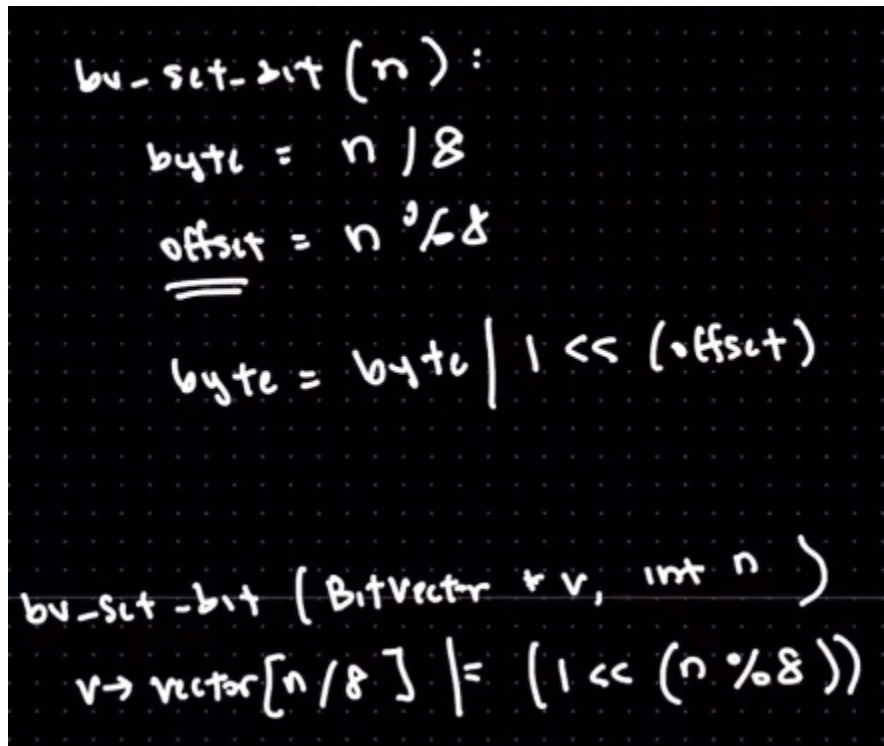 bv_set_bit (n) :
byte = n / 8
offset = n % 8
byte = byte | 1 << (offset)
bv_set_bit ( BitVector * v, int n )
v→ vector[n/8] |= (1 << (n %8))